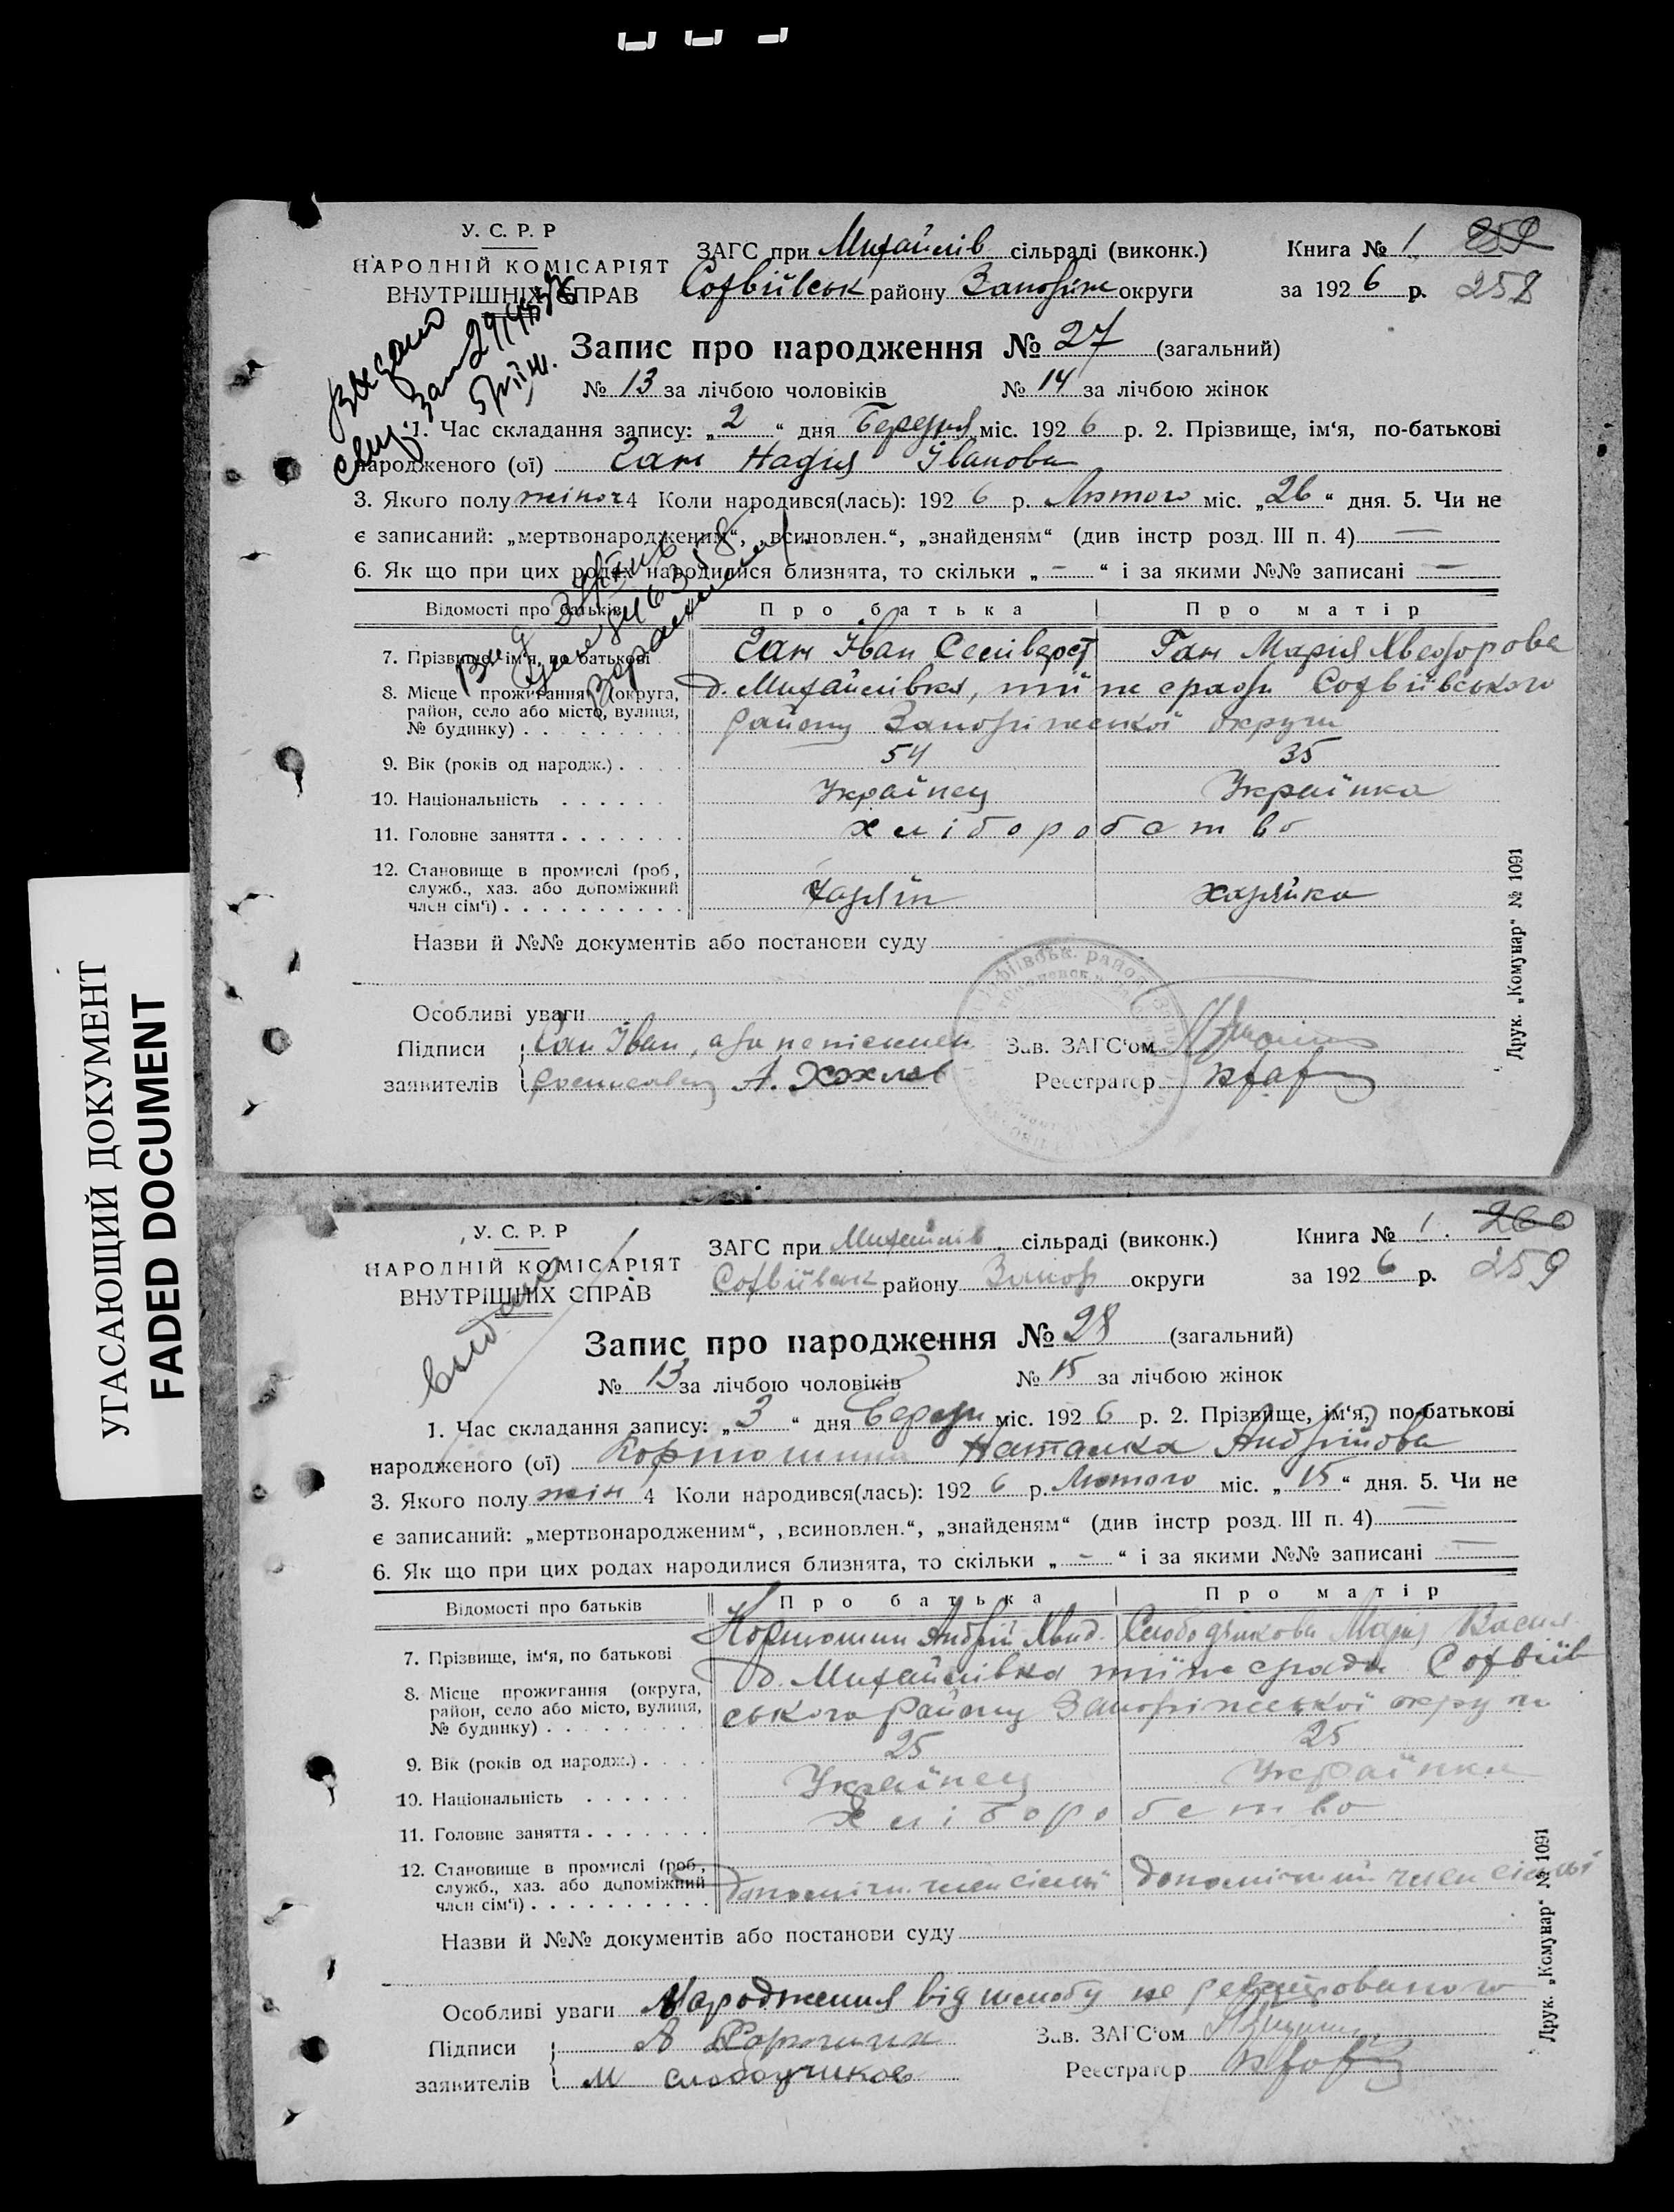 УГАСАЮЩИЙ ДОКУМЕНТ
FADED DOCUMENT
У. С. Р. Р
НАРОДНІЙ КОМІСАРІЯТ
ВНУТРІШНІХ СПРАВ
ЗАГС при Михайлів сільраді (виконк.)
Софіївськ району Запоріж округи
Книга № 1 259
за 1926 р. 258
Запис про народження № 27 (загальний)
№ 13 за лічбою чоловіків № 14 за лічбою жінок
1. Час складання запису: „2“ дня Березня міс. 1926 р. 2. Прізвище, ім‘я, по-батькові
народженого (ої) Ган Надія Іванова
3. Якого полу жіноч 4 Коли народився(лась): 1926 р. Лютого міс. „26“ дня. 5. Чи не
є записаний: „мертвонародженим“, „всиновлен.“, „знайденям“ (див інстр розд. III п. 4) —
6. Як що при цих родах народилися близнята, то скільки „ - “ і за якими №№ записані —
Відомості про батьків Про батька Про матір
7. Прізвище, ім‘я, по батькові Ган Іван Селіверст Ган Марія Хведорова
8. Місце прожигання (округа, район, село або місто, вулиця, № будинку) . . . . д. Михайлівка, тії ж сради Софіївського
району Запоріжської округи
9. Вік (років од народж.) . . . . 54 35
10. Національність . . . . . . Українец Українка
11. Головне заняття . . . . . . . хліборобство
12. Становище в промислі (роб, служб., хаз. або допоміжний член сім‘ї) . . . . . . . . . . хазяїн хазяйка
Назви й №№ документів або постанови суду
Особливі уваги
Підписи Ган Іван, а за неписьмен
заявителів росписавсь А. Хохлов
Зав. ЗАГС‘ом
Реєстратор
Друк. „Комунар“ № 1091
У. С. Р. Р
НАРОДНІЙ КОМІСАРІЯТ
ВНУТРІШНІХ СПРАВ
выдано
ЗАГС при Михайлів сільраді (виконк.)
Софіївськ району Запор округи
Книга № 1. 260
за 1926 р. 259
Запис про народження № 28 (загальний)
№ 13 за лічбою чоловіків № 15 за лічбою жінок
1. Час складання запису: „3“ дня Березн міс. 1926 р. 2. Прізвище, ім‘я, по-батькові
народженого (ої) Наталка Андрійова
3. Якого полу жін 4 Коли народився(лась): 1926 р. Лютого міс. „15“ дня. 5. Чи не
є записаний: „мертвонародженим“, „всиновлен.“, „знайденям“ (див інстр розд. III п. 4) —
6. Як що при цих родах народилися близнята, то скільки „ - “ і за якими №№ записані —
Відомості про батьків Про батька Про матір
7. Прізвище, ім‘я, по батькові Андрій Хвид. Слободчикова Марія Васил
8. Місце прожигання (округа, район, село або місто, вулиця, № будинку) . . . . . . . . д. Михайлівка тії ж сради Софіїв
ського району Запоріжської округи
9. Вік (років од народж.) . . . . 25 25
10. Національність . . . . . . Українец Українка
11. Головне заняття . . . . . . . хліборобство
12. Становище в промислі (роб, служб., хаз. або допоміжний член сім‘ї) . . . . . . . . . . допоміжн. член сімьї допоміжний член сімьї
Назви й №№ документів або постанови суду
Особливі уваги Народження від шлюбу не
Підписи А
заявителів М слободчиков
Зав. ЗАГС‘ом
Реєстратор
Друк. „Комунар“ № 1091